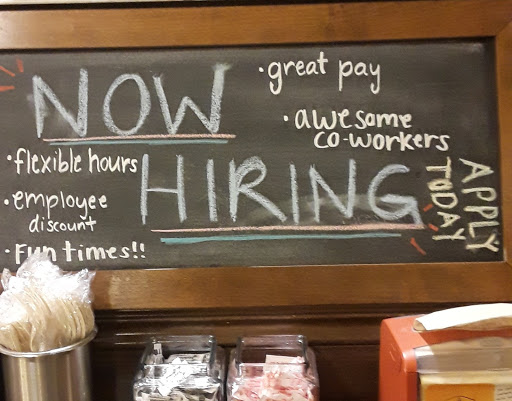 NOW
HIRING
• great pay
• awesome
co-workers
• flexible hours
• employee
discount
• Fun times!!
APPLY
TODAY